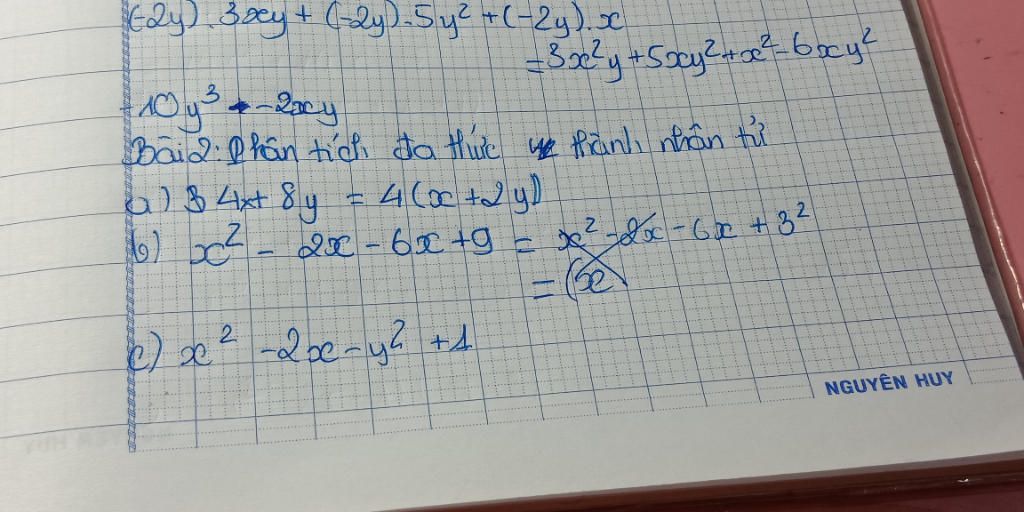 (-2y).3xy + (-2y).5y² + (-2y).x
= 3x²y + 5xy² + x² - 6xy²
- 10y³ - 2xy
Bài 2: Phân tích đa thức thành nhân tử
a) 4x + 8y = 4(x + 2y)
b) x² - 2x - 6x + 9 = x² - 2x - 6x + 3²
= (x
c) x² - 2x - y² + 1
NGUYÊN HUY